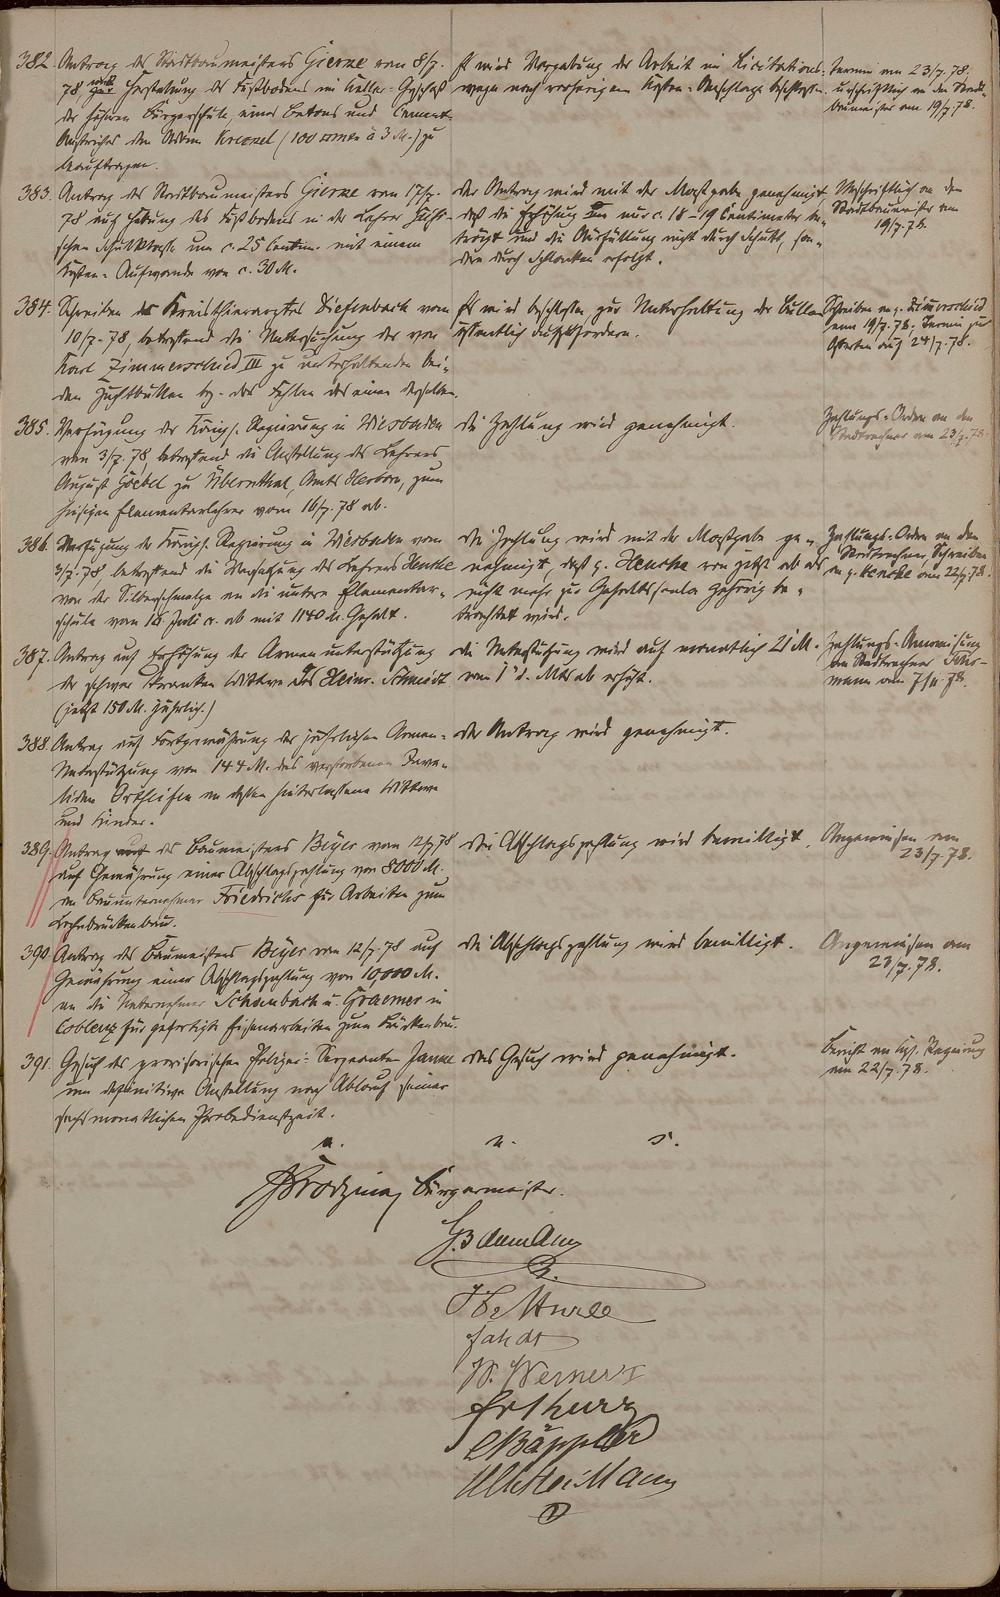 382. Antrag des Stadtbaumeisters Gierne vom 8/7.
78, zur Herstellung des Fußbodens im Keller-Geschoß
der höheren Bürgerschule, eines Betons und Cement-
Anstriches den Kreizel (100 à 3 M.) zu
beauftragen.
Es wird Vergebung der Arbeit im Licitations-
wege nach vorherigem Kosten-Anschlage beschlossen.
Termin am 23/7.78,
urschriftlich an den Stadt-
baumeister am 19/7.78.
383. Antrag des Stadtbaumeisters Gierne vom 17/7.
78 auf Hebung des Fußbodens in der Lehrer
schen Schulklasse um c. 25 Centim. mit einem
Kosten-Aufwande von c. 30 M.
Der Antrag wird mit der Maßgabe genehmigt,
daß die Erhöhung nur c. 18-19 Centimeter be-
trägt und die Ausfüllung nicht durch Schutt, son-
dern durch Schlacken erfolgt.
Urschriftlich an den
Stadtbaumeister am
19/7.78.
384. Schreiben des Kreisthierarztes Diefenbach vom
10/7.78, betreffend die Untersuchung der von
Karl Zimmerschied III zu unterhaltenden bei-
den Zuchtbullen bz. des Fehlen des einen derselben.
Es wird beschlossen zur Unterhaltung der Bullen
öffentlich aufzufordern.
Schreiben an p. Zimmerschied
am 19/7.78, Termin zur
Offerten auf 24/7.78.
385. Verfügung der Königl. Regierung in Wiesbaden
vom 3/7.78, betreffend die Anstellung des Lehrers
August Goebel zu Übernthal, Amts Herborn, zum
hiesigen Elementarlehrer vom 16/7.78 ab.
Die Zahlung wird genehmigt.
Zahlungs-Order an den
Stadtrechner am 23/7.78.
386. Verfügung der Königl. Regierung in Wiesbaden vom
3/7.78, betreffend die Versetzung des Lehrers Henche
von der Silberschmelze an die untere Elementar-
schule vom 16 Juli cr. ab mit 1140 M. Gehalt.
Die Zahlung wird mit der Maßgabe ge-
nehmigt, daß p. Henche von jetzt ab als
nicht mehr zur Gehaltsscala gehörig be-
trachtet wird.
Zahlungs-Order an den
Stadtrechner, Schreiben
an p. Henche am 22/7.78.
387. Antrag auf Erhöhung der Armenunterstützung
der schwer kranken Wittwe des Heinr. Schmidt
(jetzt 150 M. jährlich.)
Die Unterstützung wird auf monatlich 21 M.
vom 1n d. Mts ab erhöht.
Zahlungs-Anweisung
am Stadtrechner
mann am 7/11.78.
388. Antrag auf Fortgewährung der jährlichen Armen-
Unterstützung von 144 M. des verstorbenen Inva-
liden Ortseifen an dessen hinterlassene Wittwe
und Kinder.
Der Antrag wird genehmigt.
389. Antrag des Baumeisters Beyer vom 12/7.78
auf Gewährung einer Abschlagszahlung von 8000 M.
an Bauunternehmer Friedrichs für Arbeiten zum
Lahnbrückenbau.
Die Abschlagszahlung wird bewilligt.
Angewiesen am
23/7.78.
390. Antrag des Baumeisters Beyer vom 12/7.78 auf
Gewährung einer Abschlagszahlung von 10,000 M.
an die Unternehmer Schaubach u. Graemer in
Coblenz für gefertigte Eisenarbeiten zum Brückenbau.
Die Abschlagszahlung wird bewilligt.
Angewiesen am
23/7.78.
391. Gesuch des provisorischen Polizei-Sergeanten Janne
um definitive Anstellung nach Ablauf seiner
sechsmonatlichen Probedienstzeit.
Das Gesuch wird genehmigt.
Bericht an Kgl. Regierung
am 22/7.78.
a. u. s.
Bürgermeister.
W. Werner